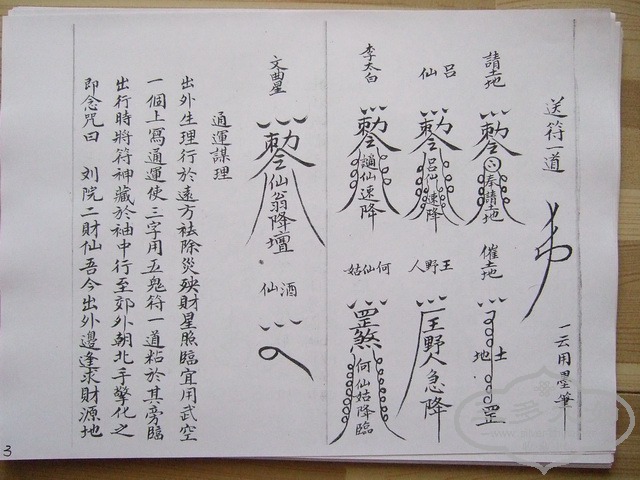 送符一道
一云用墨筆
請土地
勅令奉請土地
催土地
土地罡
呂仙
勅令呂仙速降
王野人
王野人急降
李太白
勅令謫仙速降
何仙姑
罡煞何仙姑降臨
文曲星
勅令仙翁降壇
酒仙
通運謀理
出外生理行於遠方祛除災殃財星照臨宜用武空
一個上寫通運使三字用五鬼符一道粘於其旁臨
出行時將符神藏於袖中行至郊外朝北手擎化之
即念咒曰 刘院二財仙吾今出外邊逢求財源地
3